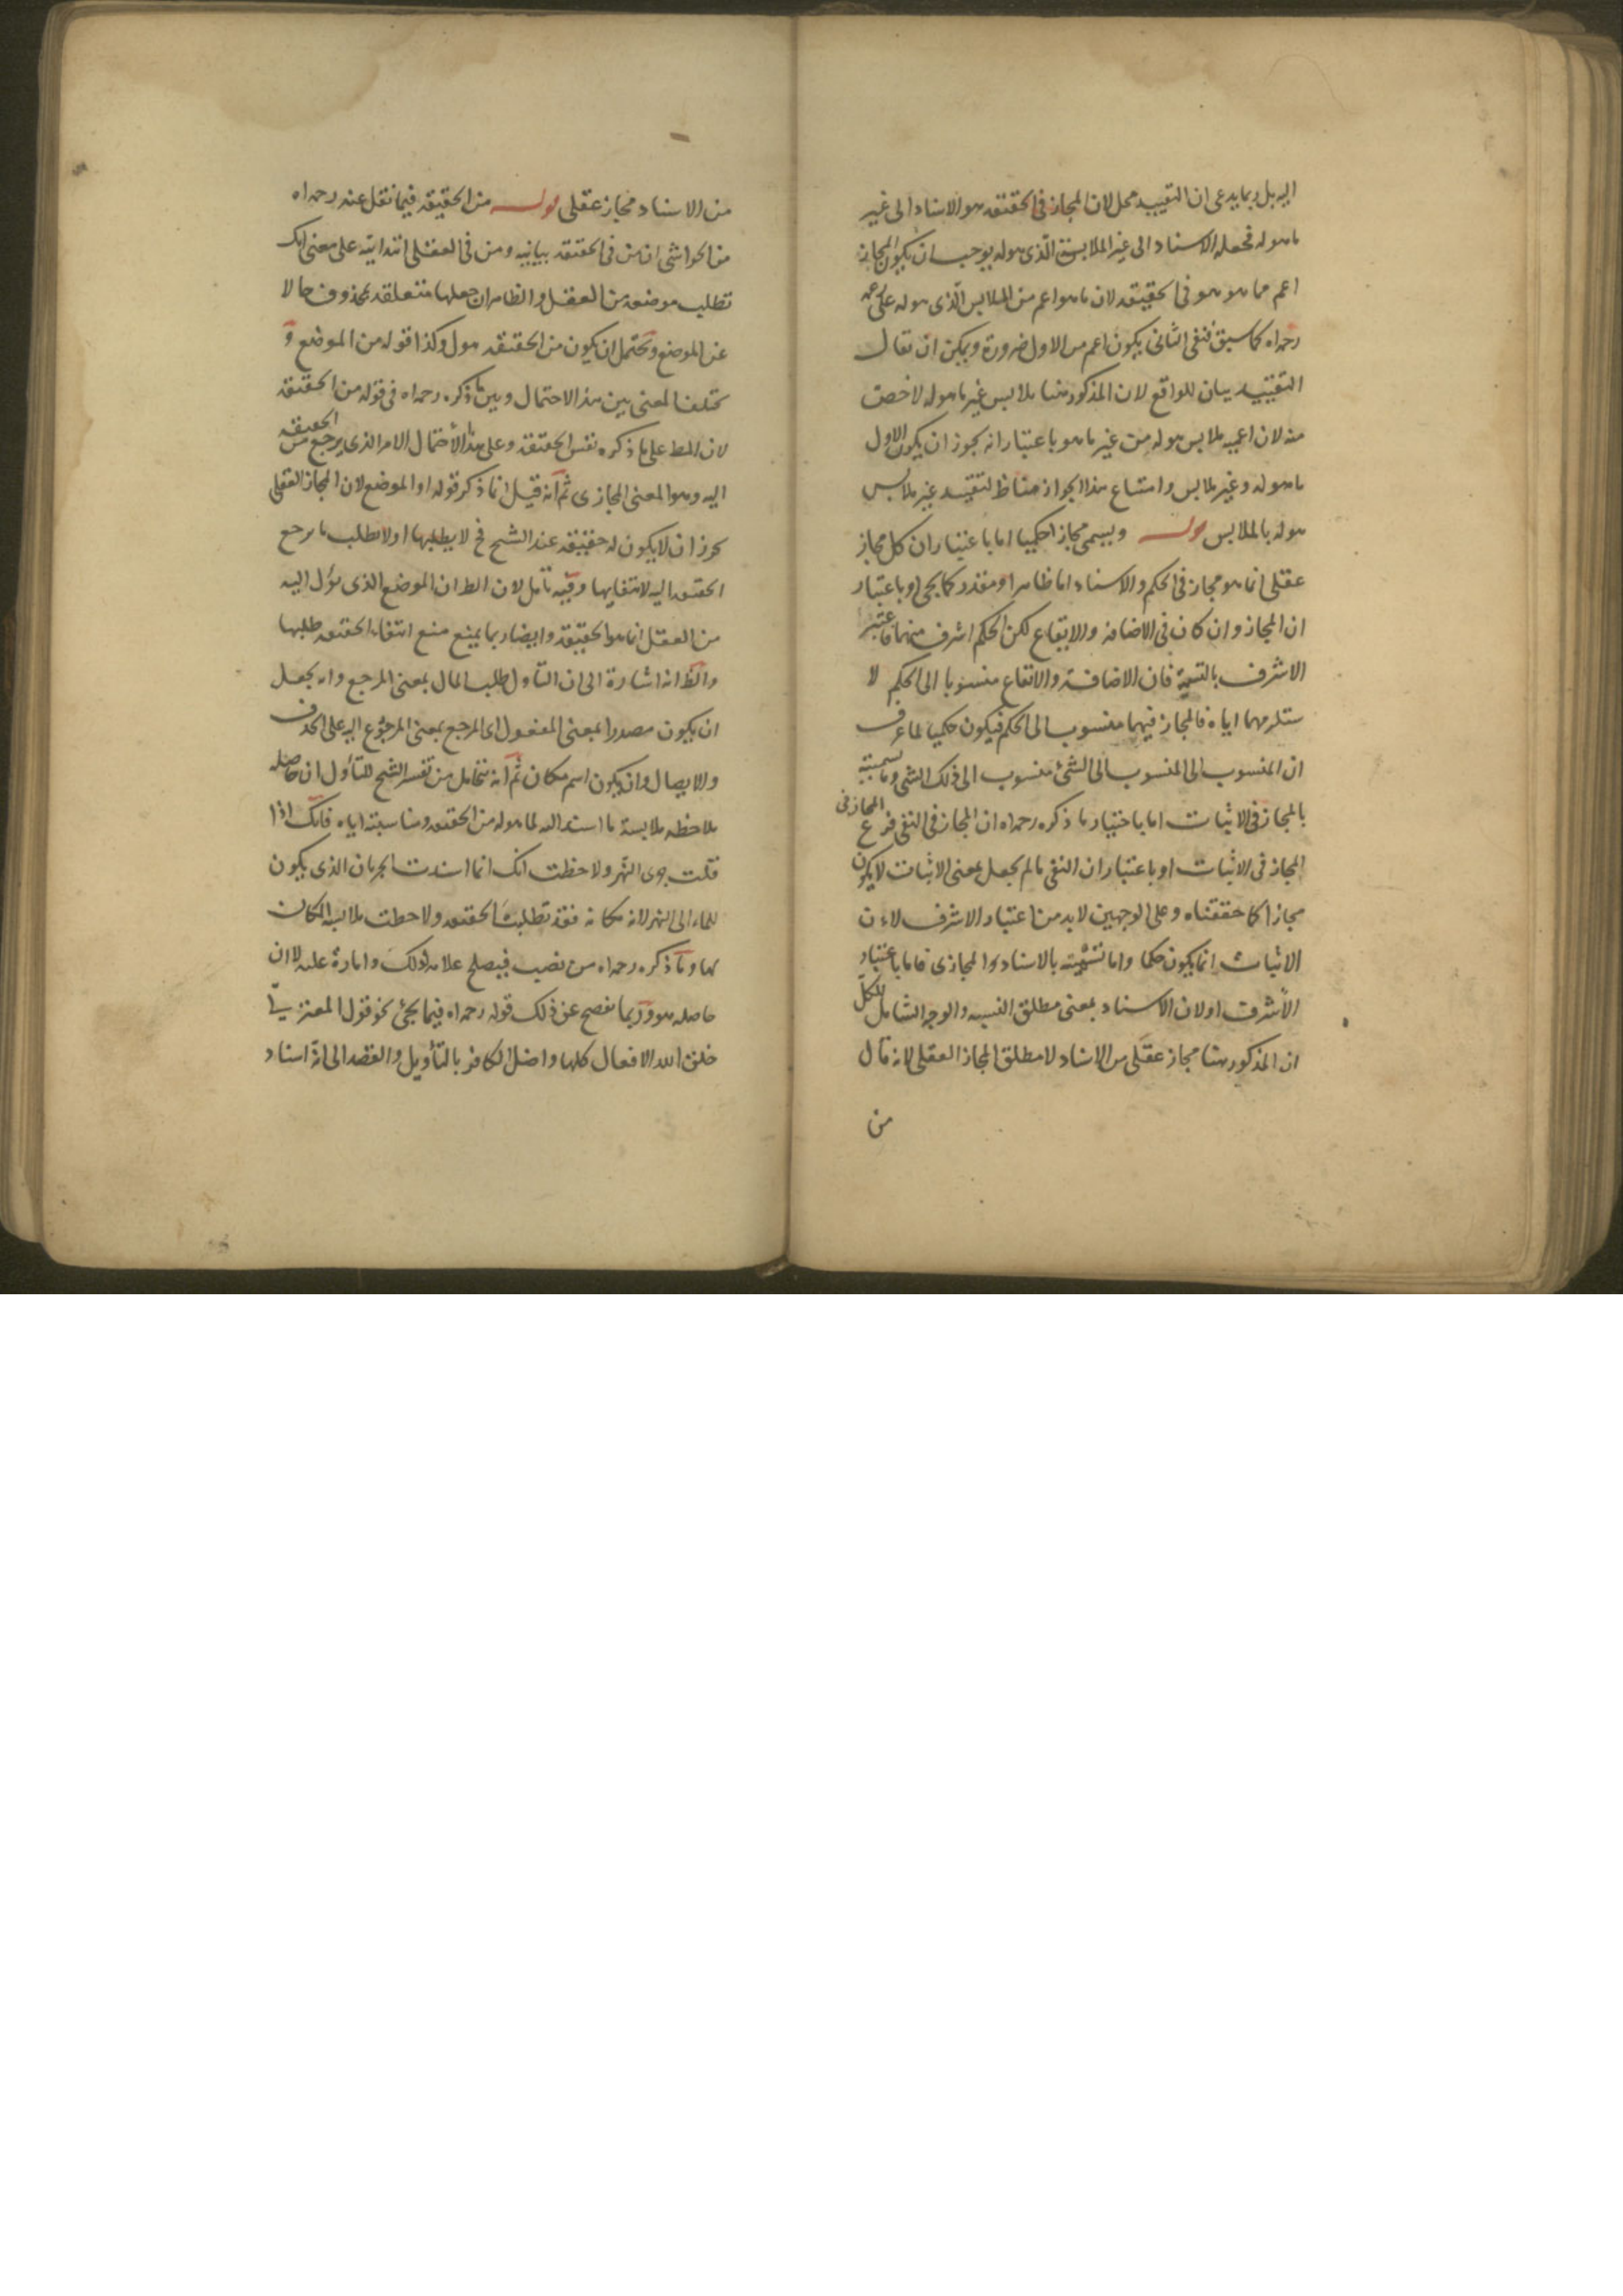 اليه بل ربما يدعى ان التقييد مخل لان المجاز فى الحقيقة هو الاسناد الى غير
ما هو له فجعله الاسناد الى غير الملابس الذى هو له يوجب ان يكون المجاز
اعم مما هو هو فى الحقيقة لان ما هو اعم من الملابس الذى هو له على
رحمه اه كما سبق فنفى الثانى يكون اعم من الاول ضرورة ويمكن ان يقال
التقييد بيان للواقع لان المذكور هنا ملابس غير ما هو له لا خصت
منه لان اعمية ملابس هو له من غير ما هو باعتبار انه يجوز ان يكون الاول
ما هو له وغير ملابس وامتناع هذا الجواز مناط لتقييد غير ملابس
هو له بالملابس قوله ويسمى مجازا حكميا اما باعتبار ان كل مجاز
عقلى انما هو مجاز فى الحكم والاسناد اما ظاهرا او مقدر كما يجئ او باعتبار
ان المجاز وان كان فى الاضافة والايقاع لكن الحكم اشرف منهما فاعتبر
الاشرف بالتسمية فان الاضافة والايقاع منسوبا الى الحكم لا
ستلزمهما اياه فالمجاز فيهما منسوب الى الحكم فيكون حكميا لما عرف
ان المنسوب الى المنسوب الى الشئ منسوب الى ذلك الشى وما تسميته
بالمجاز فى الاثبات اما باختيار ما ذكره رحمه اه ان المجاز فى النفى فرع المجاز فى
المجاز فى الاثبات او باعتبار ان النفى ما لم يجعل بمعنى الاثبات لا يكون
مجازا كما حققناه وعلى الوجهين لابد من اعتبار الاشرف لان
الاثبات انما يكون حكما واما تسميته بالاسناد المجازى فاما باعتبار
الاشرف او لان الاسناد بمعنى مطلق النسبه والوجه الشامل للكل
ان المذكور هنا مجاز عقلى من الاسناد لا مطلق المجاز العقلى لانه قال
من
من الاسناد مجاز عقلى قوله من الحقيقة فيما نقل عنه رحمه اه
من الحواشى ان من فى الحقيقة بيانيه ومن فى العقلى ابتدائية على معنى انك
تطلب موضعه من العقل والظاهر ان جعلها متعلقه بمحذوف حالا
عن الموضع ويحتمل ان يكون من الحقيقة مول وكذا قوله من الموضع و
يختلف المعنى بين هذا الاحتمال وبين ما ذكره رحمه اه فى قوله من الحقيقة
لان المط على ما ذكره نفس الحقيقة وعلى هذا الاحتمال الامر الذى يرجع من الحقيقه
اليه وهو المعنى المجازى ثم انه قيل انما ذكر قوله او الموضع لان المجاز العقلى
يجوز ان لا يكون له حقيقة عند الشيخ فح لا يطلبها اولا يطلب ما يرجع
الحقيقه اليه لانتفايها وفيه تامل لان الط ان الموضع الذى يؤل اليه
من العقل انما هو الحقيقة وايضا ربما يمنع منع انتفاء الحقيقة طلبها
والظ انه اشارة الى ان التأول طلب المال بمعنى المرجع واه يجعل
ان يكون مصدرا بمعنى المفعول اى المرجع بمعنى المرجوع اليه على الحذف
والايصال وان يكون اسم مكان ثم انه نتحامل من تفسير الشيخ للتأول ان حاصله
ملاحظه ملابسة ما اسند اليه لما هو له من الحقيقه ومناسبته اياه فانك اذا
قلت جرى النهر ولاحظت انك انما اسندت الجريان الذى يكون
للماء الى النهر لانه مكانه فقد تطلبت الحقيقه ولاحظت ملابسه المكان
بها وما ذكره رحمه اه من نصب فيصلح علامه لذلك وامارة عليه لا ان
حاصله هو وربما يفصح عن ذلك قوله رحمه اه فيما يجئ نحو قول المعتزلى
خلق الله الافعال كلها واضل الكافر بالتأويل والقصد الى انه اسناد